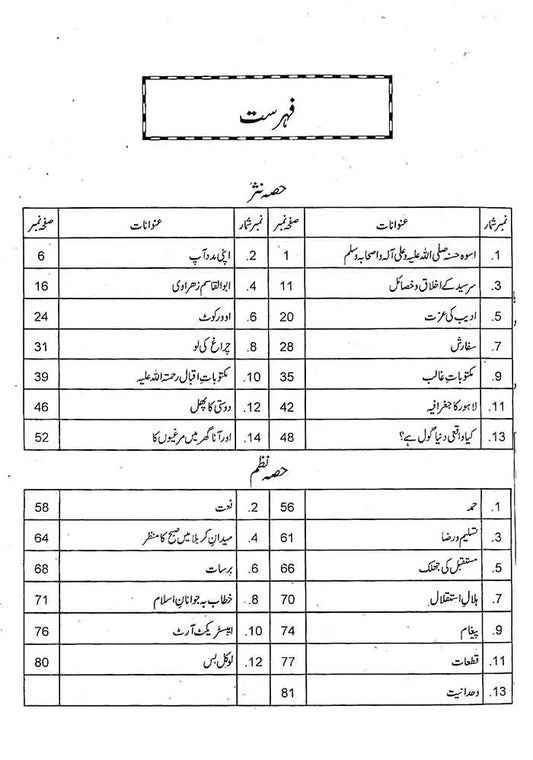 فہرست
حصہ نثر
نمبر شمار عنوانات صفحہ نمبر نمبر شمار عنوانات صفحہ نمبر
1. اسوہ حسنہ صلی اللہ علیہ وعلی آلہ واصحابہ وسلم 1 2. اپنی مدد آپ 6
3. سرسید کے اخلاق و خصائل 11 4. ابوالقاسم زھراوی 16
5. ادیب کی عزت 20 6. اوورکوٹ 24
7. سفارش 28 8. چراغ کی لو 31
9. مکتوبات غالب 35 10. مکتوبات اقبال رحمتہ اللہ علیہ 39
11. لاہور کا جغرافیہ 42 12. دوستی کا پھل 46
13. کیا واقعی دنیا گول ہے؟ 48 14. اور آنا گھر میں مرغیوں کا 52
حصہ نظم
1. حمد 56 2. نعت 58
3. تسلیم و رضا 61 4. میدان کربلا میں صبح کا منظر 64
5. مستقبل کی جھلک 66 6. برسات 68
7. ہلال استقلال 70 8. خطاب بہ جوانان اسلام 71
9. پیغام 74 10. ایبسٹریکٹ آرٹ 76
11. قطعات 77 12. لوکل بس 80
13. وحدانیت 81